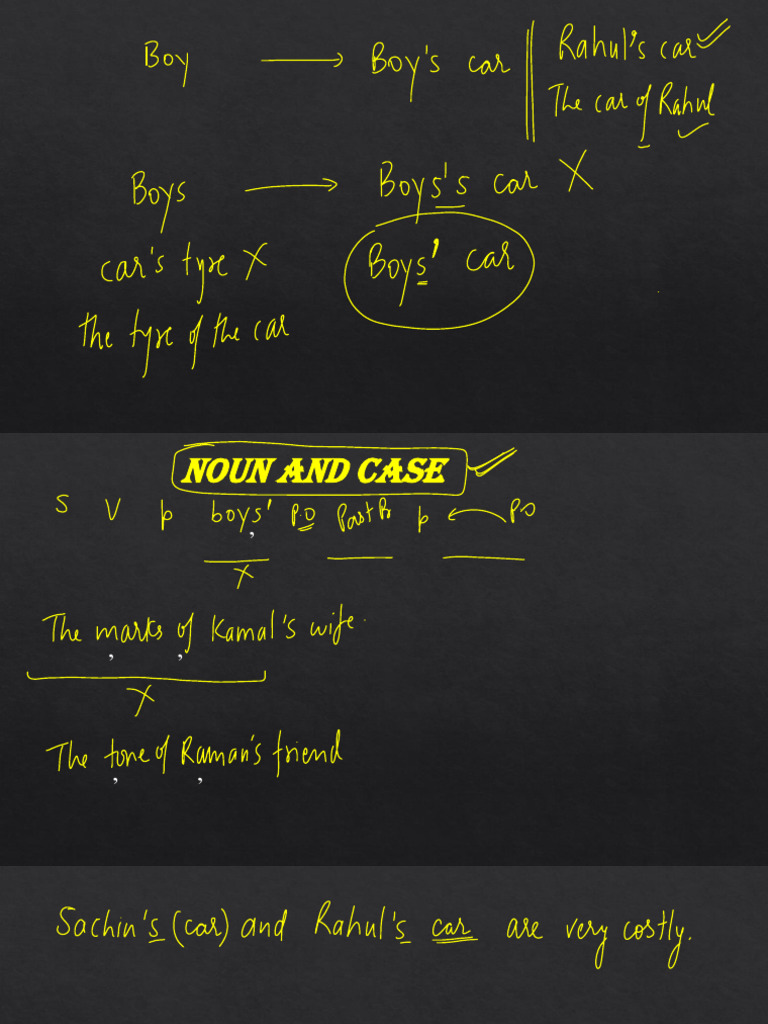 Boy → Boy's car || Rahul's car ✓
The car of Rahul ✓
Boys → Boys's car X
car's tyre X
Boys' car
the tyre of the car
NOUN AND CASE ✓
S V p boys' P.O p ← P.O
X
The marks of Kamal's wife.
X
The tone of Raman's friend
Sachin's (car) and Rahul's car are very costly.